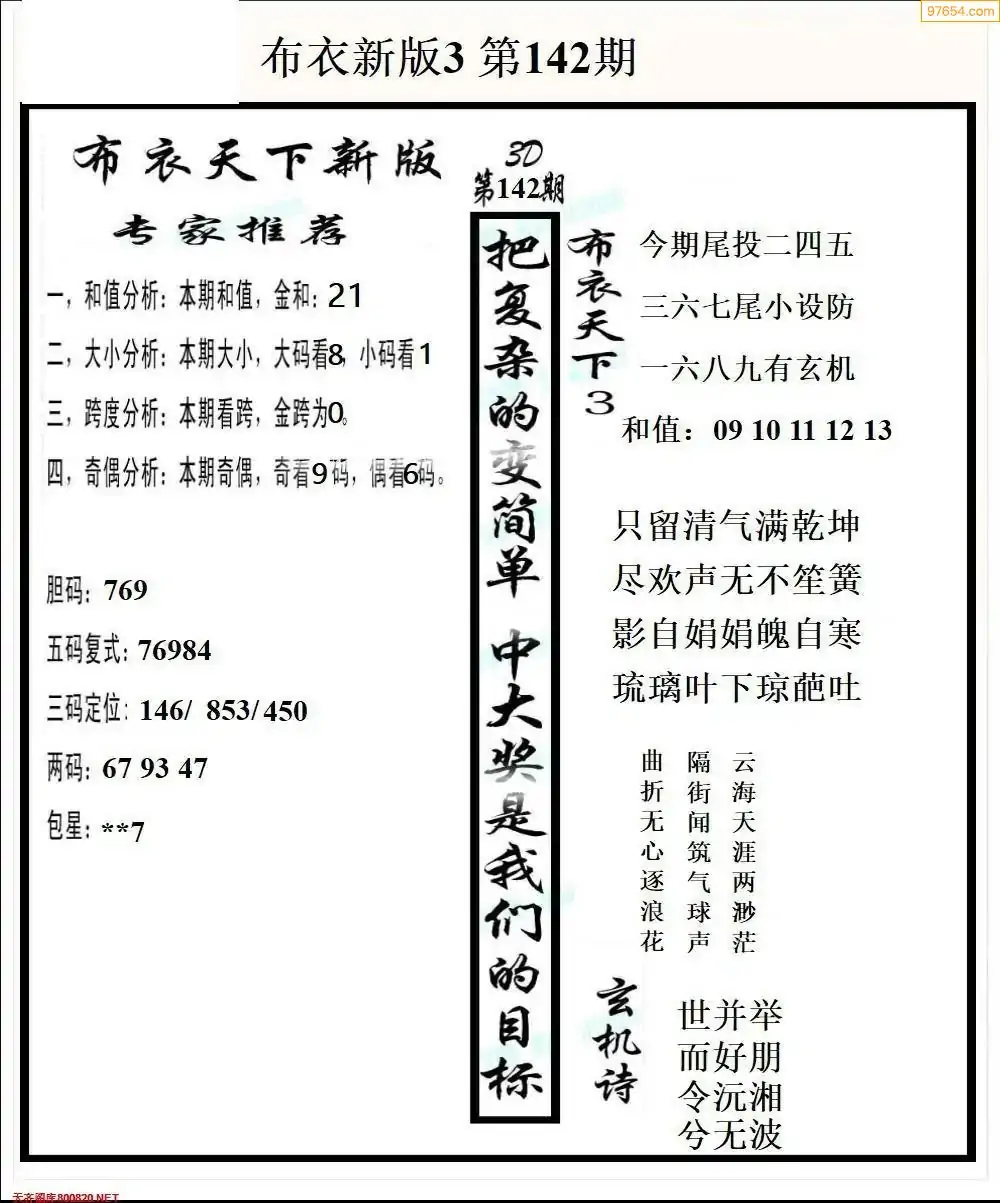 97654.com
布衣新版3 第142期
布衣天下新版
专家推荐
一，和值分析：本期和值，金和：21
二，大小分析：本期大小，大码看8，小码看1
三，跨度分析：本期看跨，金跨为0。
四，奇偶分析：本期奇偶，奇看9码，偶看6码。
胆码：769
五码复式：76984
三码定位：146/ 853/450
两码：67 93 47
包星：**7
3D
第142期
把复杂的变简单 中大奖是我们的目标
布衣天下3
今期尾投二四五
三六七尾小设防
一六八九有玄机
和值：09 10 11 12 13
只留清气满乾坤
尽欢声无不笙簧
影自娟娟魄自寒
琉璃叶下琼葩吐
云海天涯两渺茫
隔街闻筑气球声
曲折无心逐浪花
玄机诗
世并举
而好朋
令沅湘
兮无波
天齐图库800820.NET